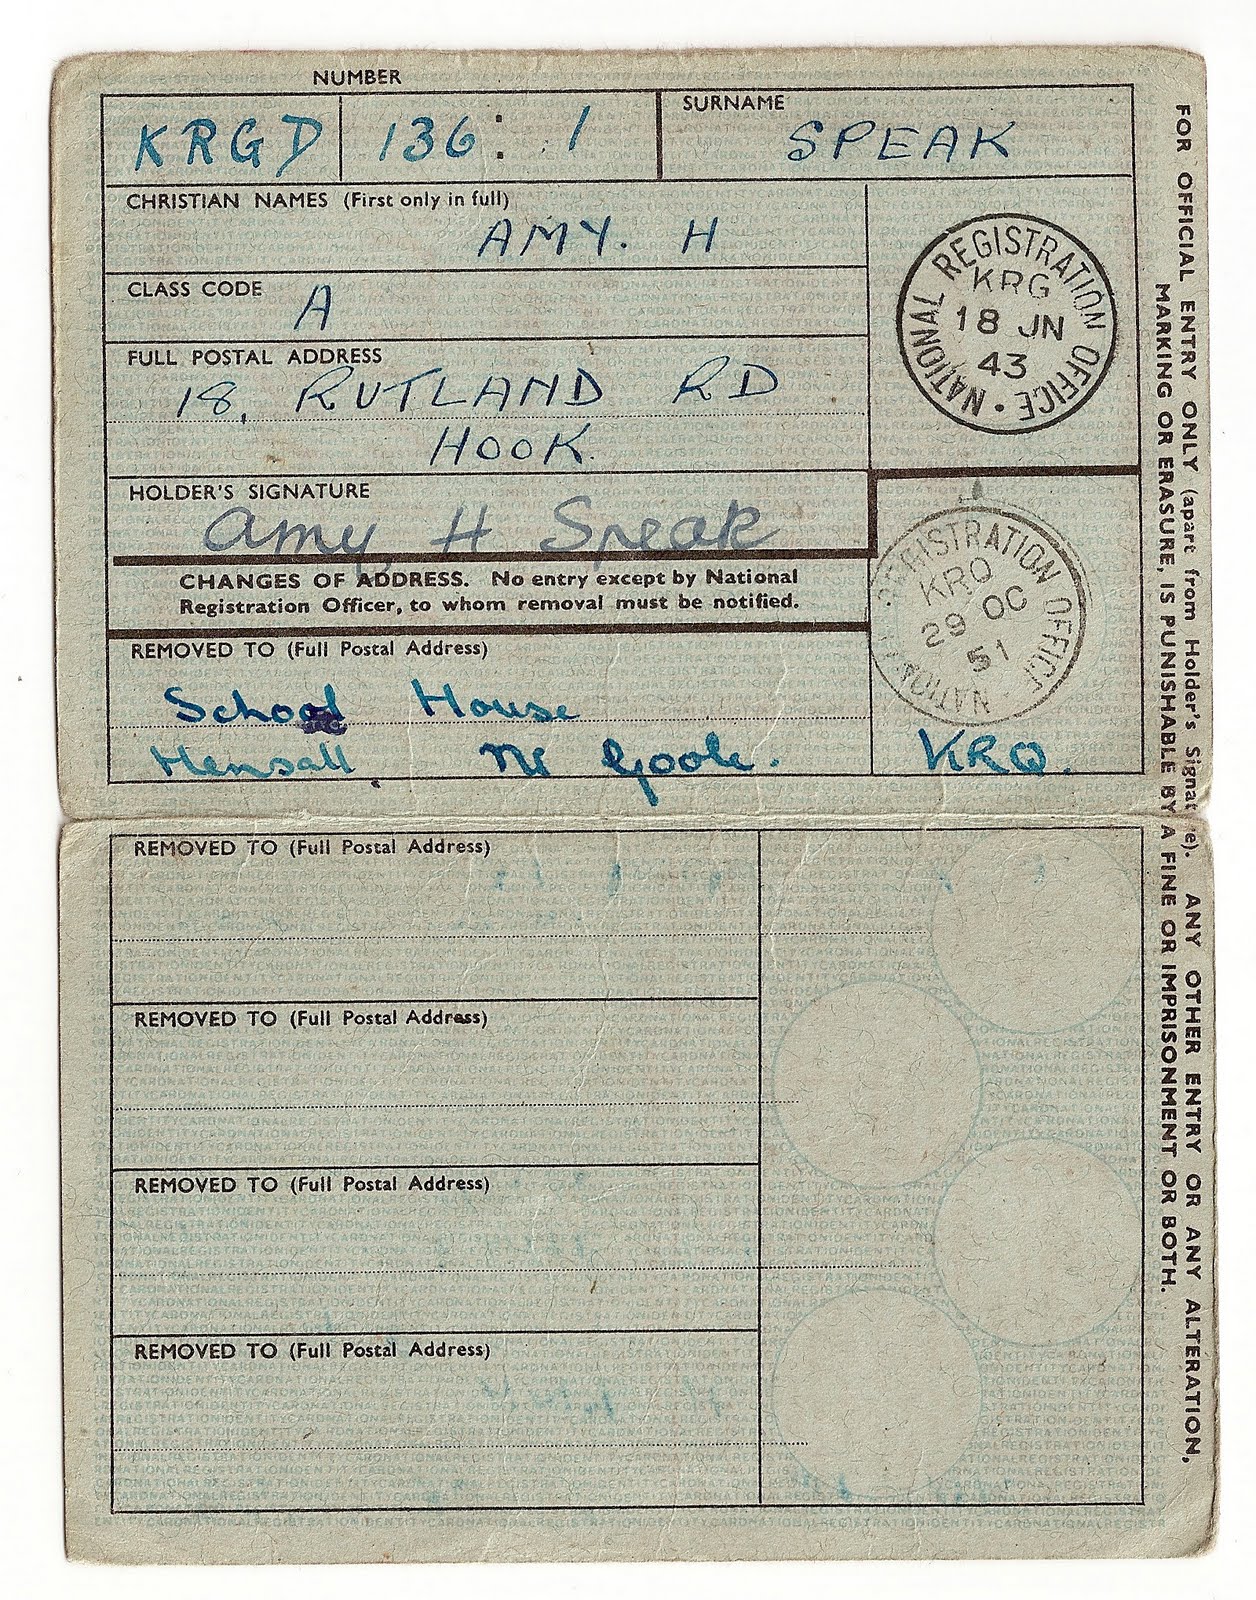 NUMBER
KRGD 136 : 1
SURNAME
SPEAK
CHRISTIAN NAMES (First only in full)
AMY. H
CLASS CODE
A
FULL POSTAL ADDRESS
18, RUTLAND RD
HOOK.
NATIONAL REGISTRATION OFFICE
KRG
18 JN
43
HOLDER'S SIGNATURE
Amy H Speak
CHANGES OF ADDRESS. No entry except by National
Registration Officer, to whom removal must be notified.
NATIONAL REGISTRATION OFFICE
KRQ
29 OC
51
REMOVED TO (Full Postal Address)
School House
Hensall, Nr Goole.
KRQ.
REMOVED TO (Full Postal Address)
REMOVED TO (Full Postal Address)
REMOVED TO (Full Postal Address)
REMOVED TO (Full Postal Address)
FOR OFFICIAL ENTRY ONLY (apart from Holder's Signature). ANY OTHER ENTRY OR ANY ALTERATION,
MARKING OR ERASURE, IS PUNISHABLE BY A FINE OR IMPRISONMENT OR BOTH.